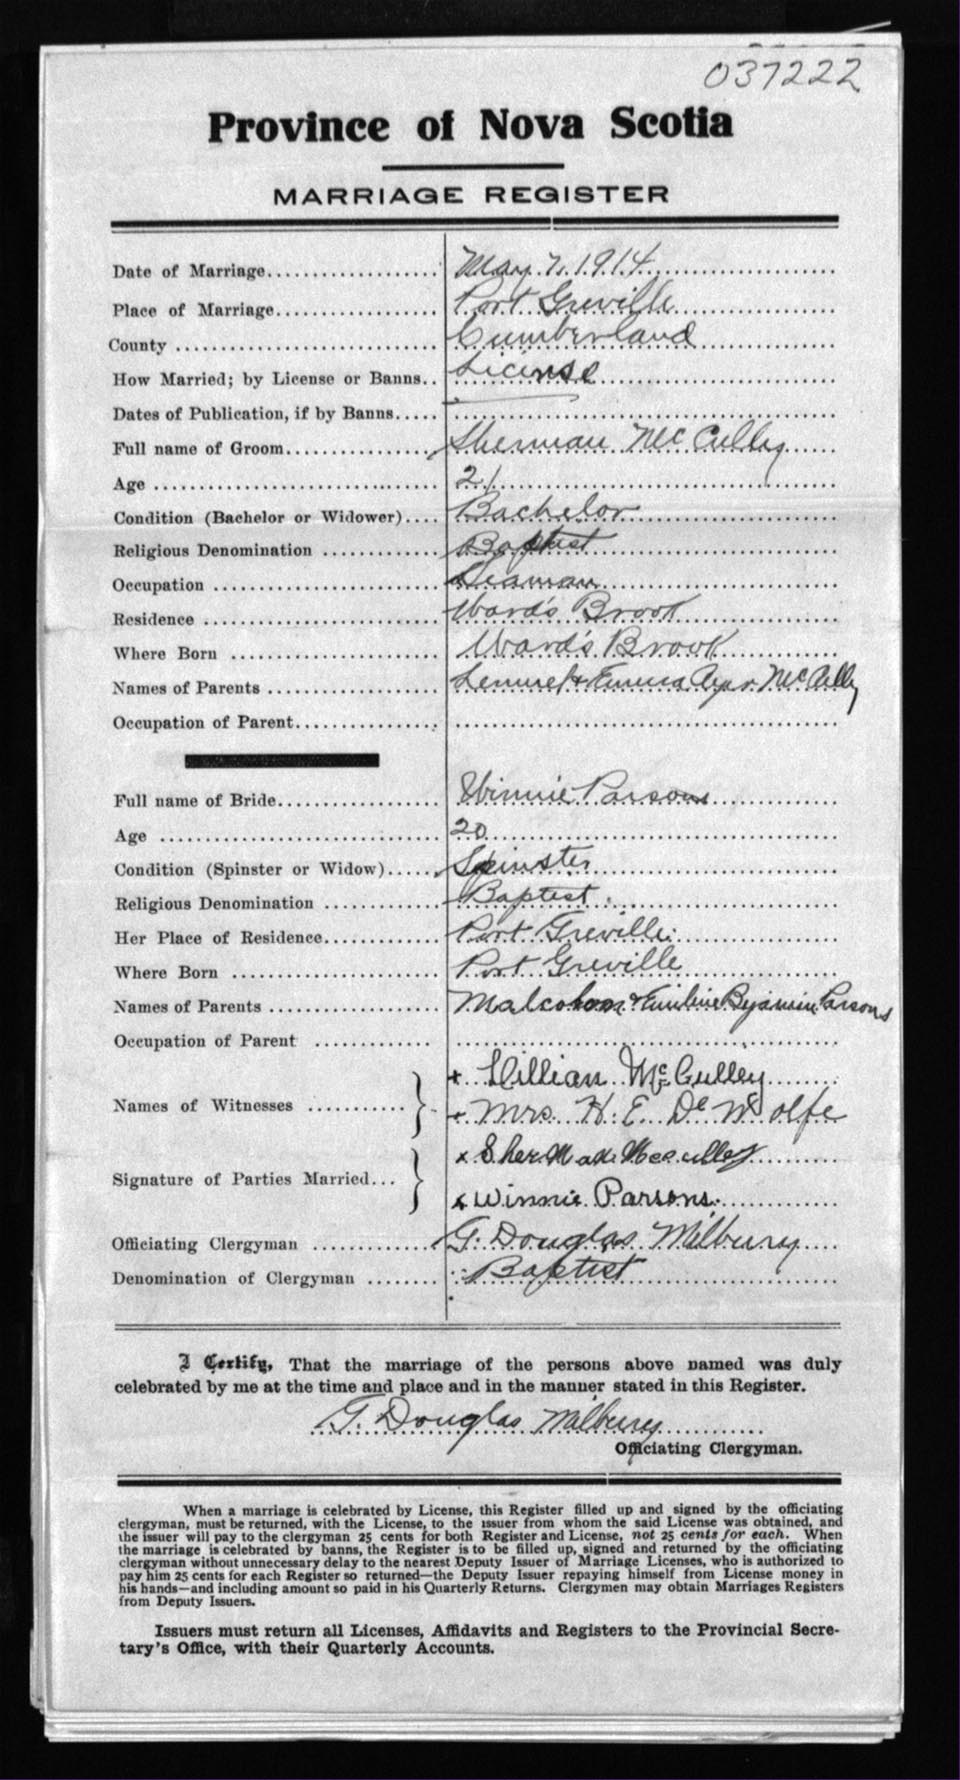 037222
Province of Nova Scotia
MARRIAGE REGISTER
Date of Marriage.................... May 7, 1914
Place of Marriage................... Port Greville
County .............................. Cumberland
How Married; by License or Banns.. License
Dates of Publication, if by Banns.....
Full name of Groom................. Sherman McCulley
Age ................................. 21
Condition (Bachelor or Widower).... Bachelor
Religious Denomination ............ Baptist
Occupation ......................... Seaman
Residence .......................... Ward's Brook
Where Born ........................ Ward's Brook
Names of Parents .................. Lemuel & Emma McCulley
Occupation of Parent................
Full name of Bride.................. Winnie Parsons
Age ................................ 20
Condition (Spinster or Widow)...... Spinster
Religious Denomination ............ Baptist
Her Place of Residence............. Port Greville
Where Born ........................ Port Greville
Names of Parents .................. Malcolm & Parsons
Occupation of Parent ..............
x Lillian McCulley
Names of Witnesses ...........
x Mrs. H. E. De Wolfe
x Sherman Mcculley
Signature of Parties Married...
x Winnie Parsons.
Officiating Clergyman ............. G. Douglas Milbury
Denomination of Clergyman ........ Baptist
I Certify, That the marriage of the persons above named was duly
celebrated by me at the time and place and in the manner stated in this Register.
G. Douglas Milbury
Officiating Clergyman.
When a marriage is celebrated by License, this Register filled up and signed by the officiating
clergyman, must be returned, with the License, to the issuer from whom the said License was obtained, and
the issuer will pay to the clergyman 25 cents for both Register and License, not 25 cents for each. When
the marriage is celebrated by banns, the Register is to be filled up, signed and returned by the officiating
clergyman without unnecessary delay to the nearest Deputy Issuer of Marriage Licenses, who is authorized to
pay him 25 cents for each Register so returned—the Deputy Issuer repaying himself from License money in
his hands—and including amount so paid in his Quarterly Returns. Clergymen may obtain Marriages Registers
from Deputy Issuers.
Issuers must return all Licenses, Affidavits and Registers to the Provincial Secre-
tary's Office, with their Quarterly Accounts.